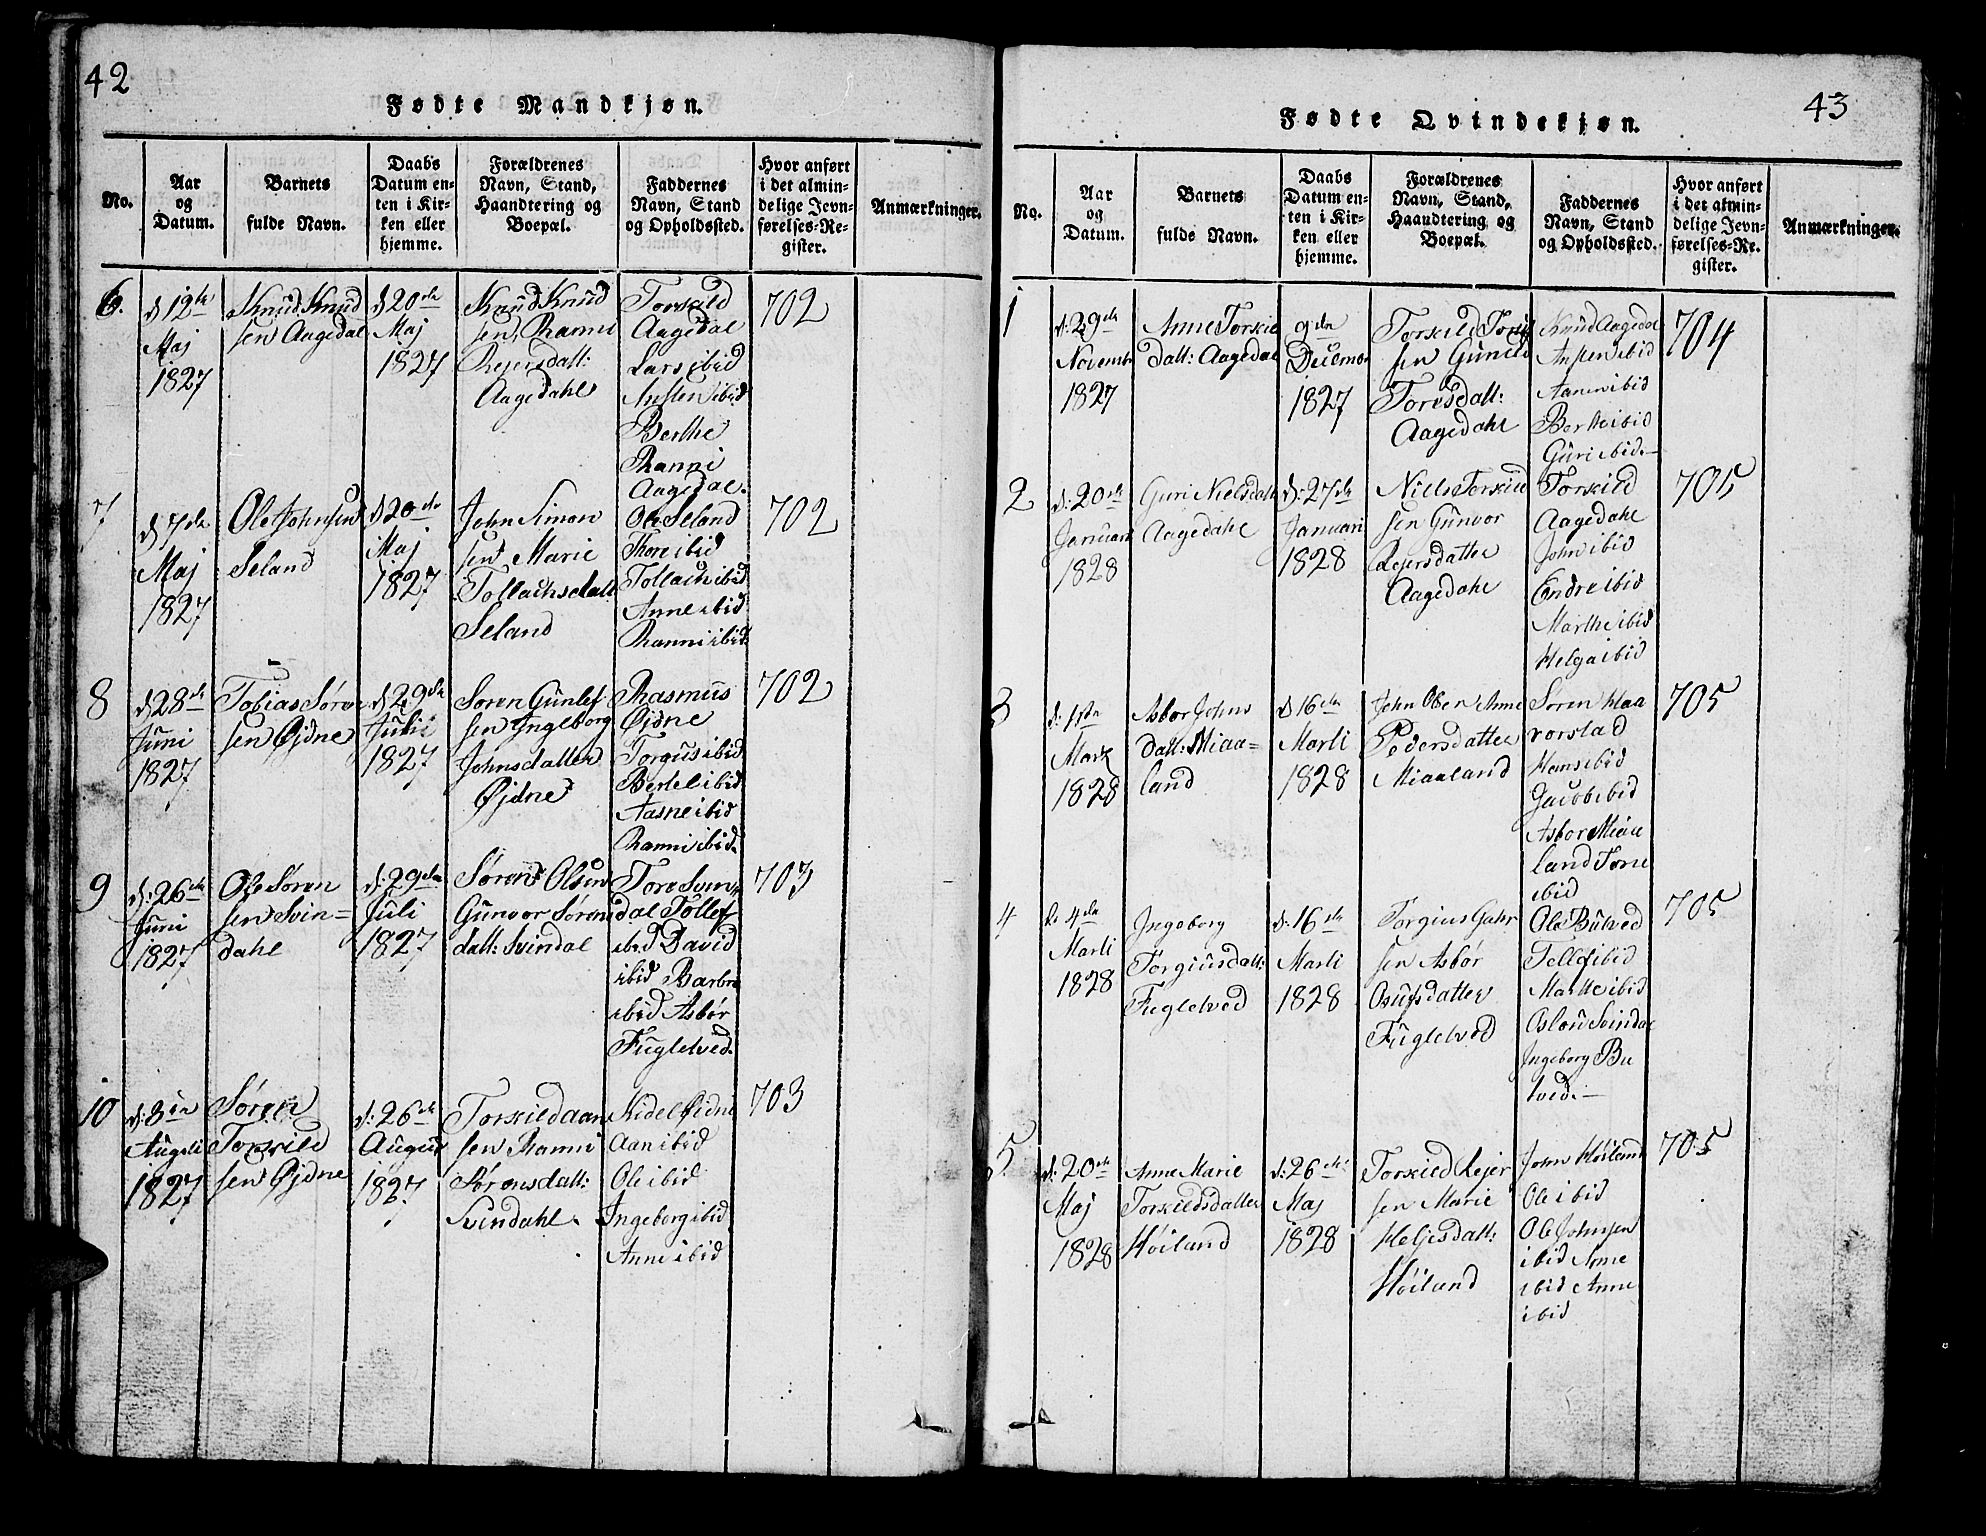 42
Fødte Mandkjøn.
No.
Aar
og
Datum.
Barnets
fulde Navn.
Daabs
Datum en-
ten i Kir-
ken eller
hjemme.
Forældrenes
Navn, Stand,
Haandtering og
Boepæl.
Faddernes
Navn, Stand
og Opholdssted.
Hvor anført
i det almin-
delige Jevn-
førelses-Re-
gister.
Anmærkninger.
6.
d 12te
Maj
1827
Knud Knud
sen Aagedal
d 20de
Maj
1827
Knud Knud
sen, Ranni
Rejersdatt:
Aagedahl
Torskild
Aagedal
Lars ibid
Ansten ibid
Berthe
Ranni
Aagedal.
702
7
d 7da
Maj
1827
Ole Johnsen
Seland
d 20de
Maj
1827
John Simon
sen Marie
Tollachsdatt
Seland
Ole Seland
Thore ibid
Tollach ibid
Anne ibid
Ranni ibid
702
8
d 28de
Juni
1827
Tobias Søren
sen Øjdne
d 29de
Juli
1827
Søren Gunlef
sen Ingeborg
Johnsdatter
Øjdne
Rasmus
Øjdne
Torgus ibid
Bertel ibid
Aasne ibid
Ranni ibid.
702
9
d: 26de
Juni
1827
Ole Søren
sen Svin=
dahl
d: 29de
Juli
1827
Søren Olsen
Gunvor Sørens
datt: Svindal
Tore Svin
dal Tollef
ibid David
ibid Barbro
ibid Asbør
Fuglelved.
703
10
d: 3die
Augusti
1827
Søren
Torskild
sen Øjdne
d: 26de
August
1827
Torskild Aan
sen Ranni
Sørensdatt:
Svindahl.
Nidel Øjdne
Aan ibid
Ole ibid
Ingeborg ibid
Anne ibid
703
43
Fødte Qvindekjøn.
No.
Aar
og
Datum.
Barnets
fulde Navn.
Daabs
Datum en-
ten i Kir-
ken eller
hjemme.
Forældrenes
Navn, Stand,
Haandtering og
Boepæl.
Faddernes
Navn, Stand
og Opholdssted.
Hvor anført
i det almin-
delige Jevn-
førelses-Re-
gister.
Anmærkninger.
1
d: 29de
Novembr
1827
Anne Torskil
datt: Aagedal
9da
Decembr
1827
Torskild
sen Gunild
Toresdatt:
Aagedahl
Knud Aagedal
Ansten ibid
Aanen ibid
Berthe ibid
Guri ibid.—
704
2
d: 20de
Januari
1828
Guri Nielsdatt
Aagedahl
d: 27de
Januari
1828
Niels Torskild
sen Gunvor
Rejersdatter
Aagedahl
Torskild
Aagedahl
John ibid
Endre ibid
Marthe ibid
Helga ibid
705
3
d: 1sta
Marti
1828
Asbor Johns
datt: Miaa=
land
d 16de
Marti
1828
John Olsen Anne
Pedersdatter
Miaaland
Søren Haa
vorstad
Hans ibid
Jacob ibid
Asbor Miaa
land Tone
ibid
705
4
d: 4da
Marti
1828
Ingeborg
Torgiusdatt:
Fuglelved
d: 16de
Marti
1828
Torgius
sen Asbør
Osufsdatter
Fuglelved
Ole
Tollef ibid
Marthe ibid
Oslou Svindal
Ingeborg Bu
lved.—
705
5
d: 20de
Maj
1828
Anne Marie
Torskildsdatter
Høiland
d: 26de
Maj
1828
Torskild Rejer
sen Marie
Heljesdatt:
Høiland
John Høiland
Ole ibid
Ole Johnsen
ibid Anne
ibid Anne
ibid
705